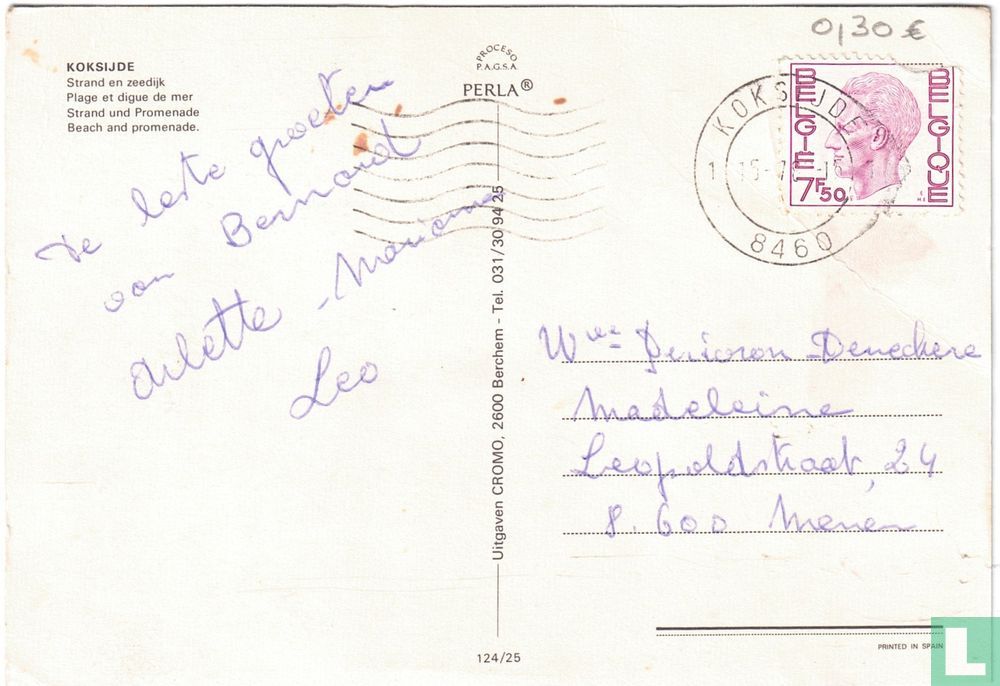 0,30 €
KOKSIJDE
Strand en zeedijk
Plage et digue de mer
Strand und Promenade
Beach and promenade.
PROCESO
P.A.G.S.A.
PERLA®
KOKSIJDE
1
8460
BELGIE
BELGIQUE
7F50
De beste groeten
van Bernard
Arlette - Marianne
Leo
Uitgaven CROMO, 2600 Berchem - Tel. 031/30 94 25
Wwe Derioron-Deneckere
Madeleine
Leopoldstraat, 24
8.600 Menen
124/25
PRINTED IN SPAIN
L